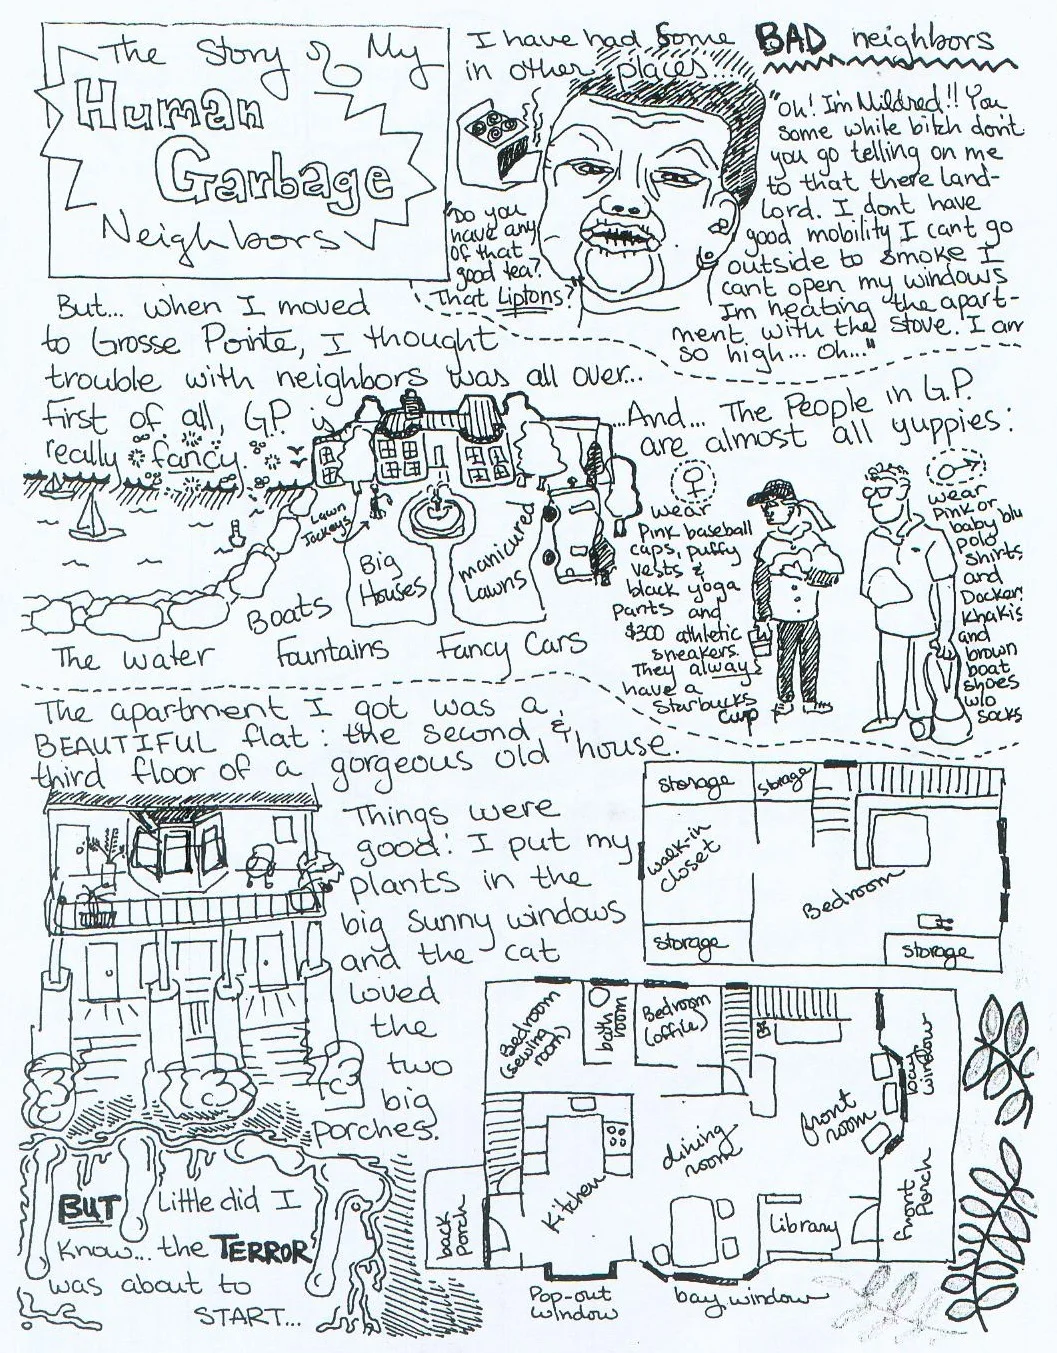 The Story of My
Human
Garbage
Neighbors
I have had some BAD neighbors
in other places...
"Do you
have any
of that
good tea?
That Liptons?"
"Oh! I'm Mildred!! You
some while bitch don't
you go telling on me
to that there land-
lord. I dont have
good mobility I cant go
outside to smoke I
cant open my windows
Im heating the apart-
ment with the stove. I am
so high... oh..."
But... when I moved
to Grosse Pointe, I thought
trouble with neighbors was all over...
First of all, G.P. is
really fancy.
Lawn
Jockeys
Big
Houses
manicured
Lawns
Boats
The water
Fountains
Fancy Cars
...And... The People in G.P.
are almost all yuppies:
wear
Pink baseball
caps, puffy
vests &
black yoga
pants and
$300 athletic
sneakers.
They always
have a
Starbucks
cup
wear
pink or
baby blu
polo
shirts
and
Docker
Khakis
and
brown
boat
shoes
w/o
socks
The apartment I got was a
BEAUTIFUL flat: the second &
third floor of a gorgeous old house.
Things were
good! I put my
plants in the
big sunny windows
and the cat
loved
the
two
big
porches.
storage
storage
walk-in
closet
Bedroom
storage
storage
Bedroom
(sewing
room)
bath
room
Bedroom
(office)
bay
window
front
room
dining
room
Kitchen
Library
front
Porch
back
Porch
Pop-out
window
bay window
BUT Little did I
Know... the TERROR
was about to
START...